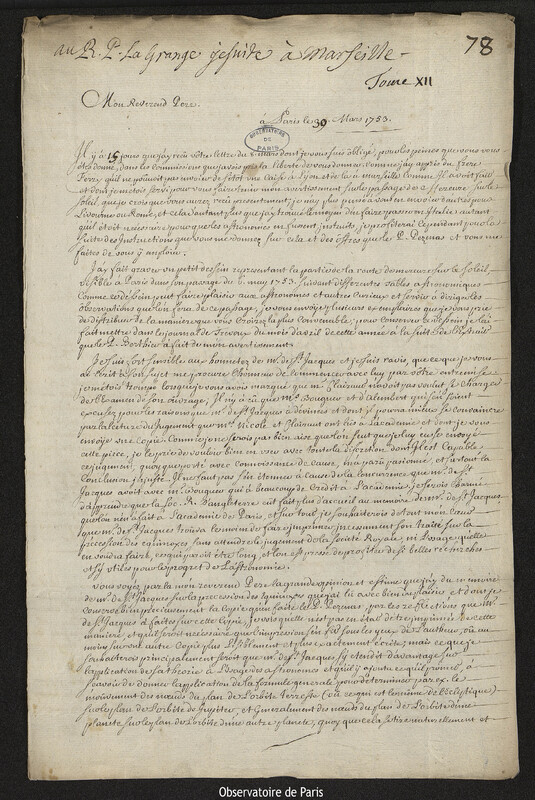 au R. P. La Grange jesuite à Marseille
78
Tome XII
Mon Reverend Pere.
à Paris le 30 Mars 1753.
OBSERVATOIRE DE PARIS
Il y a 15 jours que j'ay reçu vôtre lettre du mars dont je vous suis obligé, pour les peines que vous vous
êtes donné, dans les commissions que j'avois pris la liberté de vous donner comme j'ay appris du frere
qu'il ne pouvoit pas envoier de sitôt une caisse à Lyon et de là à marseille comme il avoit fait
et dont je m'étois servi pour vous faire tenir mon avertissement sur le passage de mercure sur le
Soleil, que je crois que vous aurez reçu presentement, je n'ay plus pensé à vous en envoier d'autres pour
Livourne ou Rome, et cela d'autant plus que j'ay trouvé le moyen d'en faire passer en Italie autant
qu'il étoit necessaire pour que les astronomes en fussent instruits, je profiterai cependant pour la
suite des Instructions que vous me donnez sur cela et des offres que le P. Pezenas et vous me
faites de vous y emploier.
J'ay fait graver un petit dessin representant la partie de la route de mercure sur le Soleil,
visible à Paris dans son passage du 6 may 1753. suivant differentes tables astronomiques
Comme ce dessin peut faire plaisir aux astronomes et autres curieux et servir à diriger les
observations que l'on fera de ce passage, je vous en envoye plusieurs exemplaires que je vous prie
de distribuer de la maniere que vous croirez la plus convenable; pour conserver ce dessin je l'ai
fait mettre dans le journal de Trevoux du mois d'avril de cette année à la suite de l'Extrait
que le P. Berthier a fait de mon avertissement.
Je suis fort sensible aux honnetetez de mr. de St. Jacques et je suis ravis, que ce que je vous
ai écrit à son sujet me procure l'honneur de commencer avec luy par votre entremise
je m'étois trompé lorsque je vous avois marqué que mr. Clairaut n'avoit pas voulu se charger
de l'Examen de son ouvrage; Il n'y a eu que mr. Bouguer et d'alembert qui s'en soient
excusez pour les raisons que mr. de St. Jacques a devinées et dont il pourra mieux se convaincre
par la lecture du jugement que mrs. Nicole et Clairaut ont lus à l'academie et dont je vous
envoye une copie Comme je ne serois pas bien aise que l'on sçut que je luy eusse envoyé
cette piece, je le prie de vouloir bien en user avec toute la discretion dont il est capable
ce jugement, quoyque porté avec connoissance de cause, m'a paru passionné, et surtout la
Conclusion injuste. Il ne faut pas s'en étonner à cause de la concurrence que mr. de St.
Jacques avoit avec mr. Bouguer qui a beaucoup de credit à L'academie. Je serois charmé
d'apprendre que la Soc. R. d'angleterre eût fait plus d'accueil au memoire de mr. de St. Jacques
que l'on n'en a fait à L'academie de Paris, et sur tout je souhaiterois de tout mon coeur
que mr. de St. Jacques trouva le moien de faire imprimer incessamment son traité sur la
precession des equinoxes sans attendre le jugement de la Societé Royale, ni l'usage qu'elle
en voudra faire, ce qui pourroit être long, et l'on est pressé de profiter de si belles recherches
et si utiles pour le progrez de L'astronomie.
Vous voyez par là mon reverend Pere la grande opinion et estime que j'ay du memoire
de mr. de St. Jacques sur la precession des Equinoxes que j'ai lû avec bien du plaisir et dont je
conserve bien precieusement la copie qu'en a faite le P. Pezenas. par les reflections que mr.
de St. Jacques a faites sur cette copie, je vois qu'elle n'est pas en état d'être imprimée de cette
maniere, et qu'il seroit necessaire que l'impression s'en fit sous les yeux de l'autheur, ou au
moins sur une autre copie plus complete et plus exactement écrite; mais ce que je
souhaiterois principalement seroit que mr. de St. Jacques s'y etendit davantage sur
l'application de sa theorie à l'usage des astronomes et qu'il y ajouta ce qu'il promet, à
sçavoir de donner l'application de la formule generale pour determiner par ex. le
mouvement des noeuds du plan de l'orbite terrestre (ou ce qui est le même de l'Ecliptique)
sur le plan de l'orbite de jupiter, et Generalement des noeuds du plan de l'orbite d'une
planete sur le plan de l'orbite d'une autre planete, quoyque cela se tire naturellement et
Observatoire de Paris